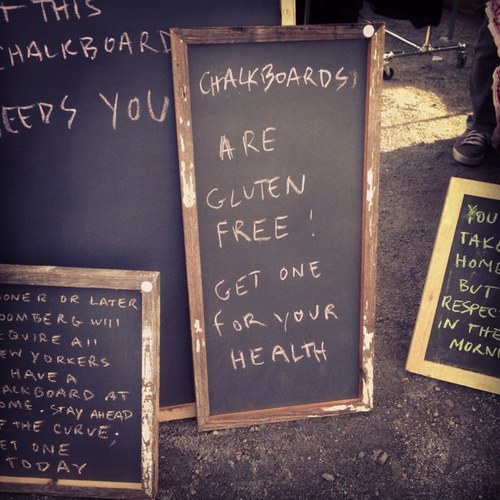 T THIS
CHALKBOARD
EEDS YOU
CHALKBOARDS
ARE
GLUTEN
FREE!
GET ONE
FOR YOUR
HEALTH
ONER OR LATER
OOMBERG WILL
EQUIRE All
EW YORKERS
HAVE A
ALKBOARD AT
OME. STAY AHEAD
F THE CURVE,
ET ONE
TODAY
YOU
TAKE
HOME
BUT
RESPEC
IN THE
MORN